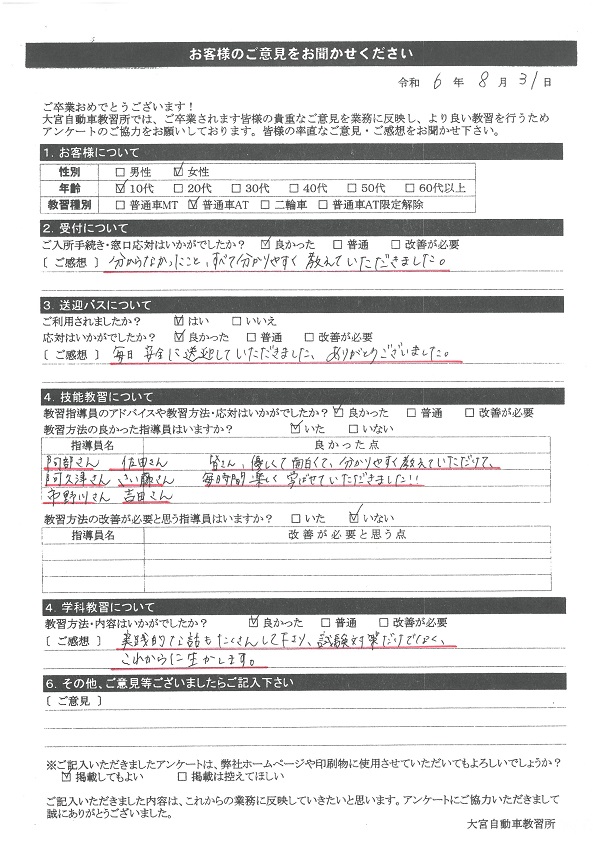 お客様のご意見をお聞かせください
令和 6 年 8 月 31 日
ご卒業おめでとうございます！
大宮自動車教習所では、ご卒業されます皆様の貴重なご意見を業務に反映し、より良い教習を行うため
アンケートのご協力をお願いしております。皆様の率直なご意見・ご感想をお聞かせ下さい。
1. お客様について
性別 □ 男性 ☑ 女性
年齢 ☑ 10代 □ 20代 □ 30代 □ 40代 □ 50代 □ 60代以上
教習種別 □ 普通車MT ☑ 普通車AT □ 二輪車 □ 普通車AT限定解除
2. 受付について
ご入所手続き・窓口応対はいかがでしたか？ ☑ 良かった □ 普通 □ 改善が必要
〔 ご感想 〕 分からなかったこと、すべて分かりやすく教えていただきました。
3. 送迎バスについて
ご利用されましたか？ ☑ はい □ いいえ
応対はいかがでしたか？ ☑ 良かった □ 普通 □ 改善が必要
〔 ご感想 〕 毎日安全に送迎していただきました、ありがとうございました。
4. 技能教習について
教習指導員のアドバイスや教習方法・応対はいかがでしたか？ ☑ 良かった □ 普通 □ 改善が必要
教習方法の良かった指導員はいますか？ ☑ いた □ いない
指導員名 良かった点
阿部さん 佐田さん 皆さん、優しくて面白くて、分かりやすく教えていただけて、
阿久津さん さい藤さん 毎時間楽しく学ばせていただきました!!
市野川さん 吉田さん
教習方法の改善が必要と思う指導員はいますか？ □ いた ☑ いない
指導員名 改善が必要と思う点
4. 学科教習について
教習方法・内容はいかがでしたか？ ☑ 良かった □ 普通 □ 改善が必要
〔 ご感想 〕 実践的な話もたくさんして下さり、試験対策だけでなく、
これからに生かします。
6. その他、ご意見等ございましたらご記入下さい
〔 ご意見 〕
※ご記入いただきましたアンケートは、弊社ホームページや印刷物に使用させていただいてもよろしいでしょうか？
☑ 掲載してもよい □ 掲載は控えてほしい
ご記入いただきました内容は、これからの業務に反映していきたいと思います。アンケートにご協力いただきまして
誠にありがとうございました。
大宮自動車教習所